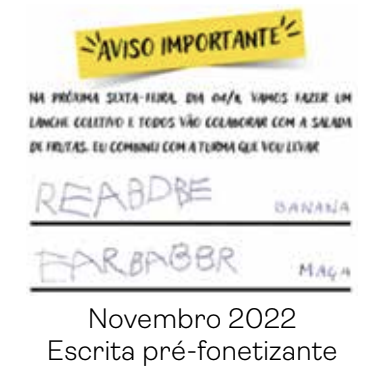 AVISO IMPORTANTE
NA PRÓXIMA SEXTA-FEIRA, DIA 04/11, VAMOS FAZER UM
LANCHE COLETIVO E TODOS VÃO COLABORAR COM A SALADA
DE FRUTAS. EU COMBINEI COM A TURMA QUE VOU LEVAR
REABDBE BANANA
EARBABBR MAÇA
Novembro 2022
Escrita pré-fonetizante